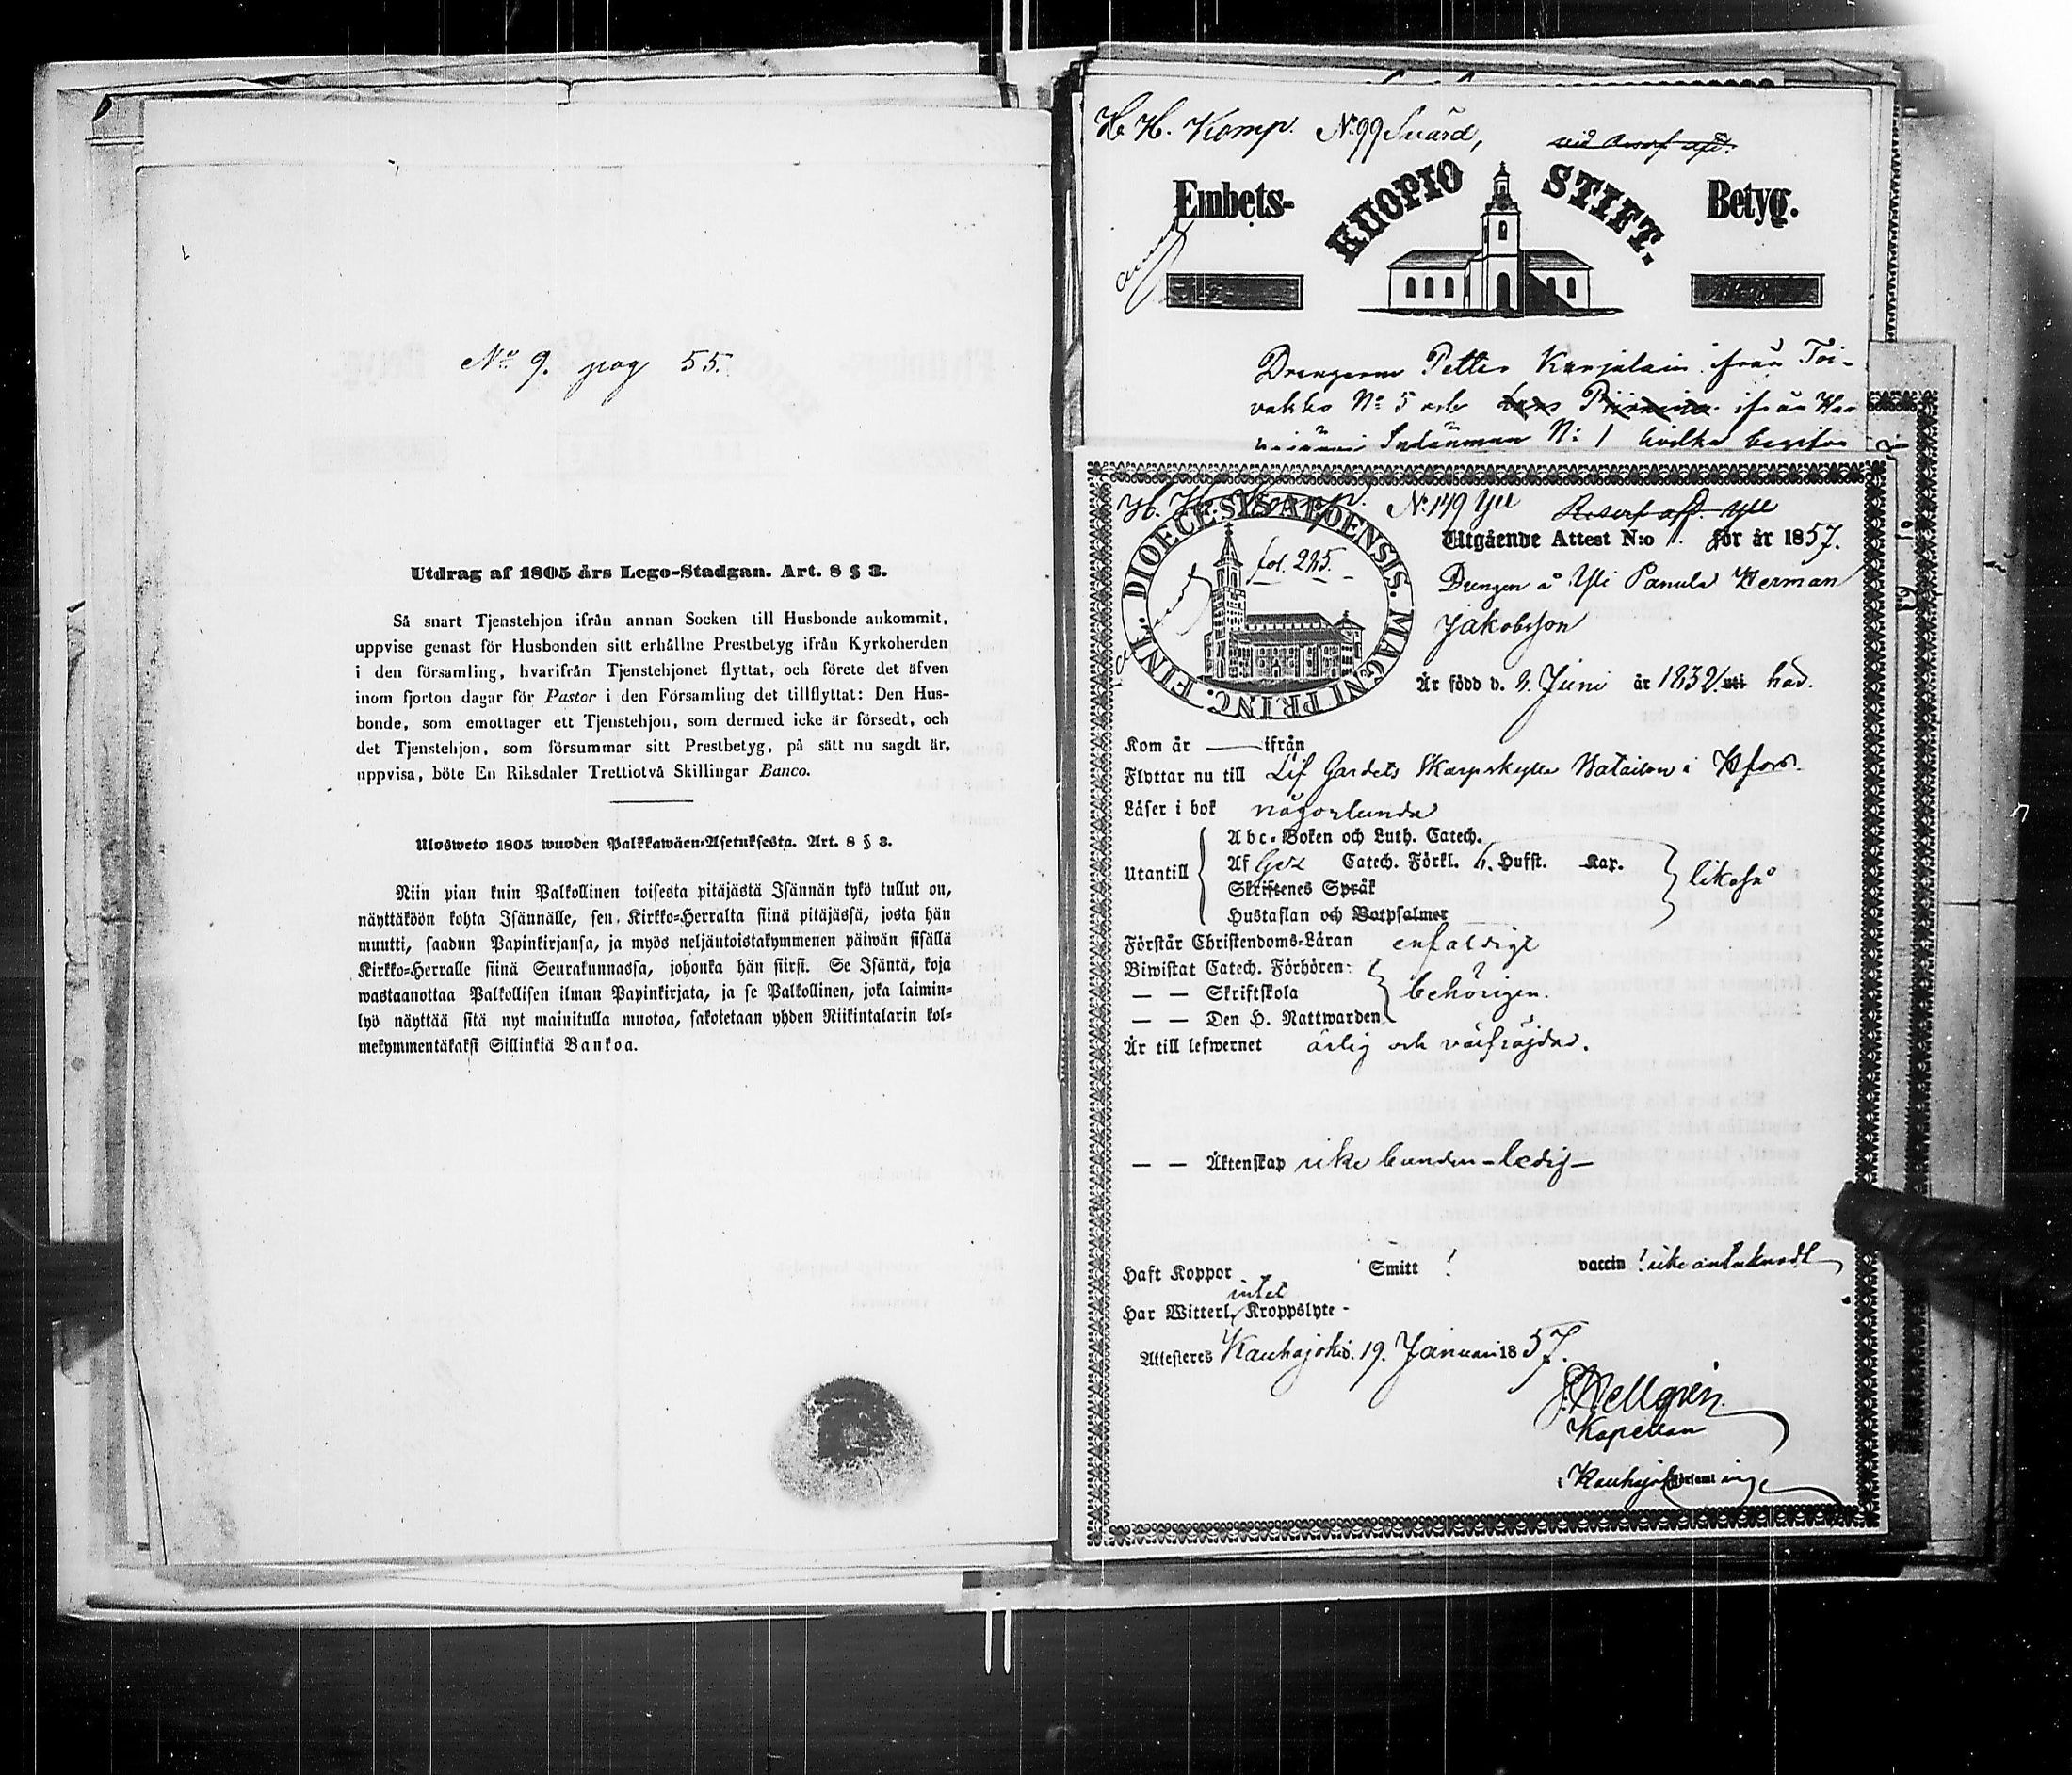 No 9. pag 55.
Utdrag af 1805 års Lego-Stadgan. Art. 8 § 3.
Så snart Tjenstehjon ifrån annan Socken till Husbonde ankommit,
uppvise genast för Husbonden sitt erhållne Prestbetyg ifrån Kyrkoherden
i den församling, hvarifrån Tjenstehjonet flyttat, och förete det äfven
inom fjorton dagar för Pastor i den Församling det tillflyttat: Den Hus-
bonde, som emottager ett Tjenstehjon, som dermed icke är försedt, och
det Tjenstehjon, som försummar sitt Prestbetyg, på sätt nu sagdt är,
uppvisa, böte En Riksdaler Trettiotvå Skillingar Banco.
Ulosweto 1805 wuoden Palkkawäen-Asetuksesta. Art. 8 § 3.
Niin pian kuin Palkollinen toisesta pitäjästä Isännän tykö tullut on,
näyttäköön kohta Isännälle, sen Kirkko-Herralta siinä pitäjässä, josta hän
muutti, saadun Papinkirjansa, ja myös neljäntoistakymmenen päiwän sisällä
Kirkko-Herralle siinä Seurakunnassa, johonka hän siirsi. Se Isäntä, koja
wastaanottaa Palkollisen ilman Papinkirjata, ja se Palkollinen, joka laimin-
lyö näyttää sitä nyt mainitulla muotoa, sakotetaan yhden Riikintalarin kol-
mekymmentäkaksi Sillinkiä Bankoa.
H. H. Komp. N:99 Svärd,
Embets- KUOPIO STIFT. Betyg.
Drengarne Petter Karjalain ifrån Toi-
vakko No 5 och Lars Piirainen ifrån
N: 1 hvilka begifva
H. H. Komp. N:149 Yll
DIOECESIS ABOENSIS. MAGNI PRINC. FINL.
fol. 225.
Utgående Attest N:o 1. för år 1857.
Drengen å Yli Panula Herman
Jakobsson
Är född d. 9. Juni år 1832. uti här.
Kom år — ifrån
Flyttar nu till Lif Gardets Skarpskytte Bataillon i Hfors.
Läser i bok någorlunda
Utantill
Abc-Boken och Luth. Catech.
Af Gez Catech. Förkl. h. Hufst. Kap.
Skriftenes Språk
Hustaflan och Botpsalmer
likaså
Förstår Christendoms-Läran enfaldigt
Biwistat Catech. Förhören
— — Skriftskola behörigen.
— — Den H. Nattwarden
Är till lefwernet ärlig och välfräjdad.
— — Äktenskap icke bunden - ledig -
Haft Koppor Smitt ! vaccin ! icke antecknadt
Har Witterl. intet Kroppslyte -
Attesteres Kauhajoki d. 19. Januari 1857.
J. Hellgrén.
Kapellan
i Kauhajoki Församling